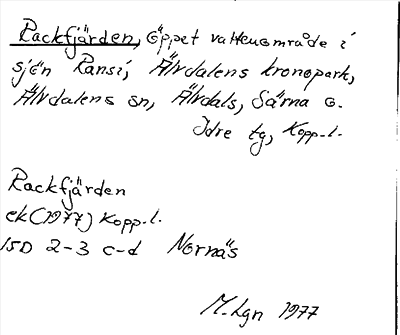 Rackfjärden, öppet vattenområde i
sjön Ransi, Älvdalens kronopark,
Älvdalens sn, Älvdals, Särna o.
Idre tg, Kopp.l.
Rackfjärden
ek(1977) Kopp.l.
15D 2-3 c-d Nornäs
M.Lgn 1977